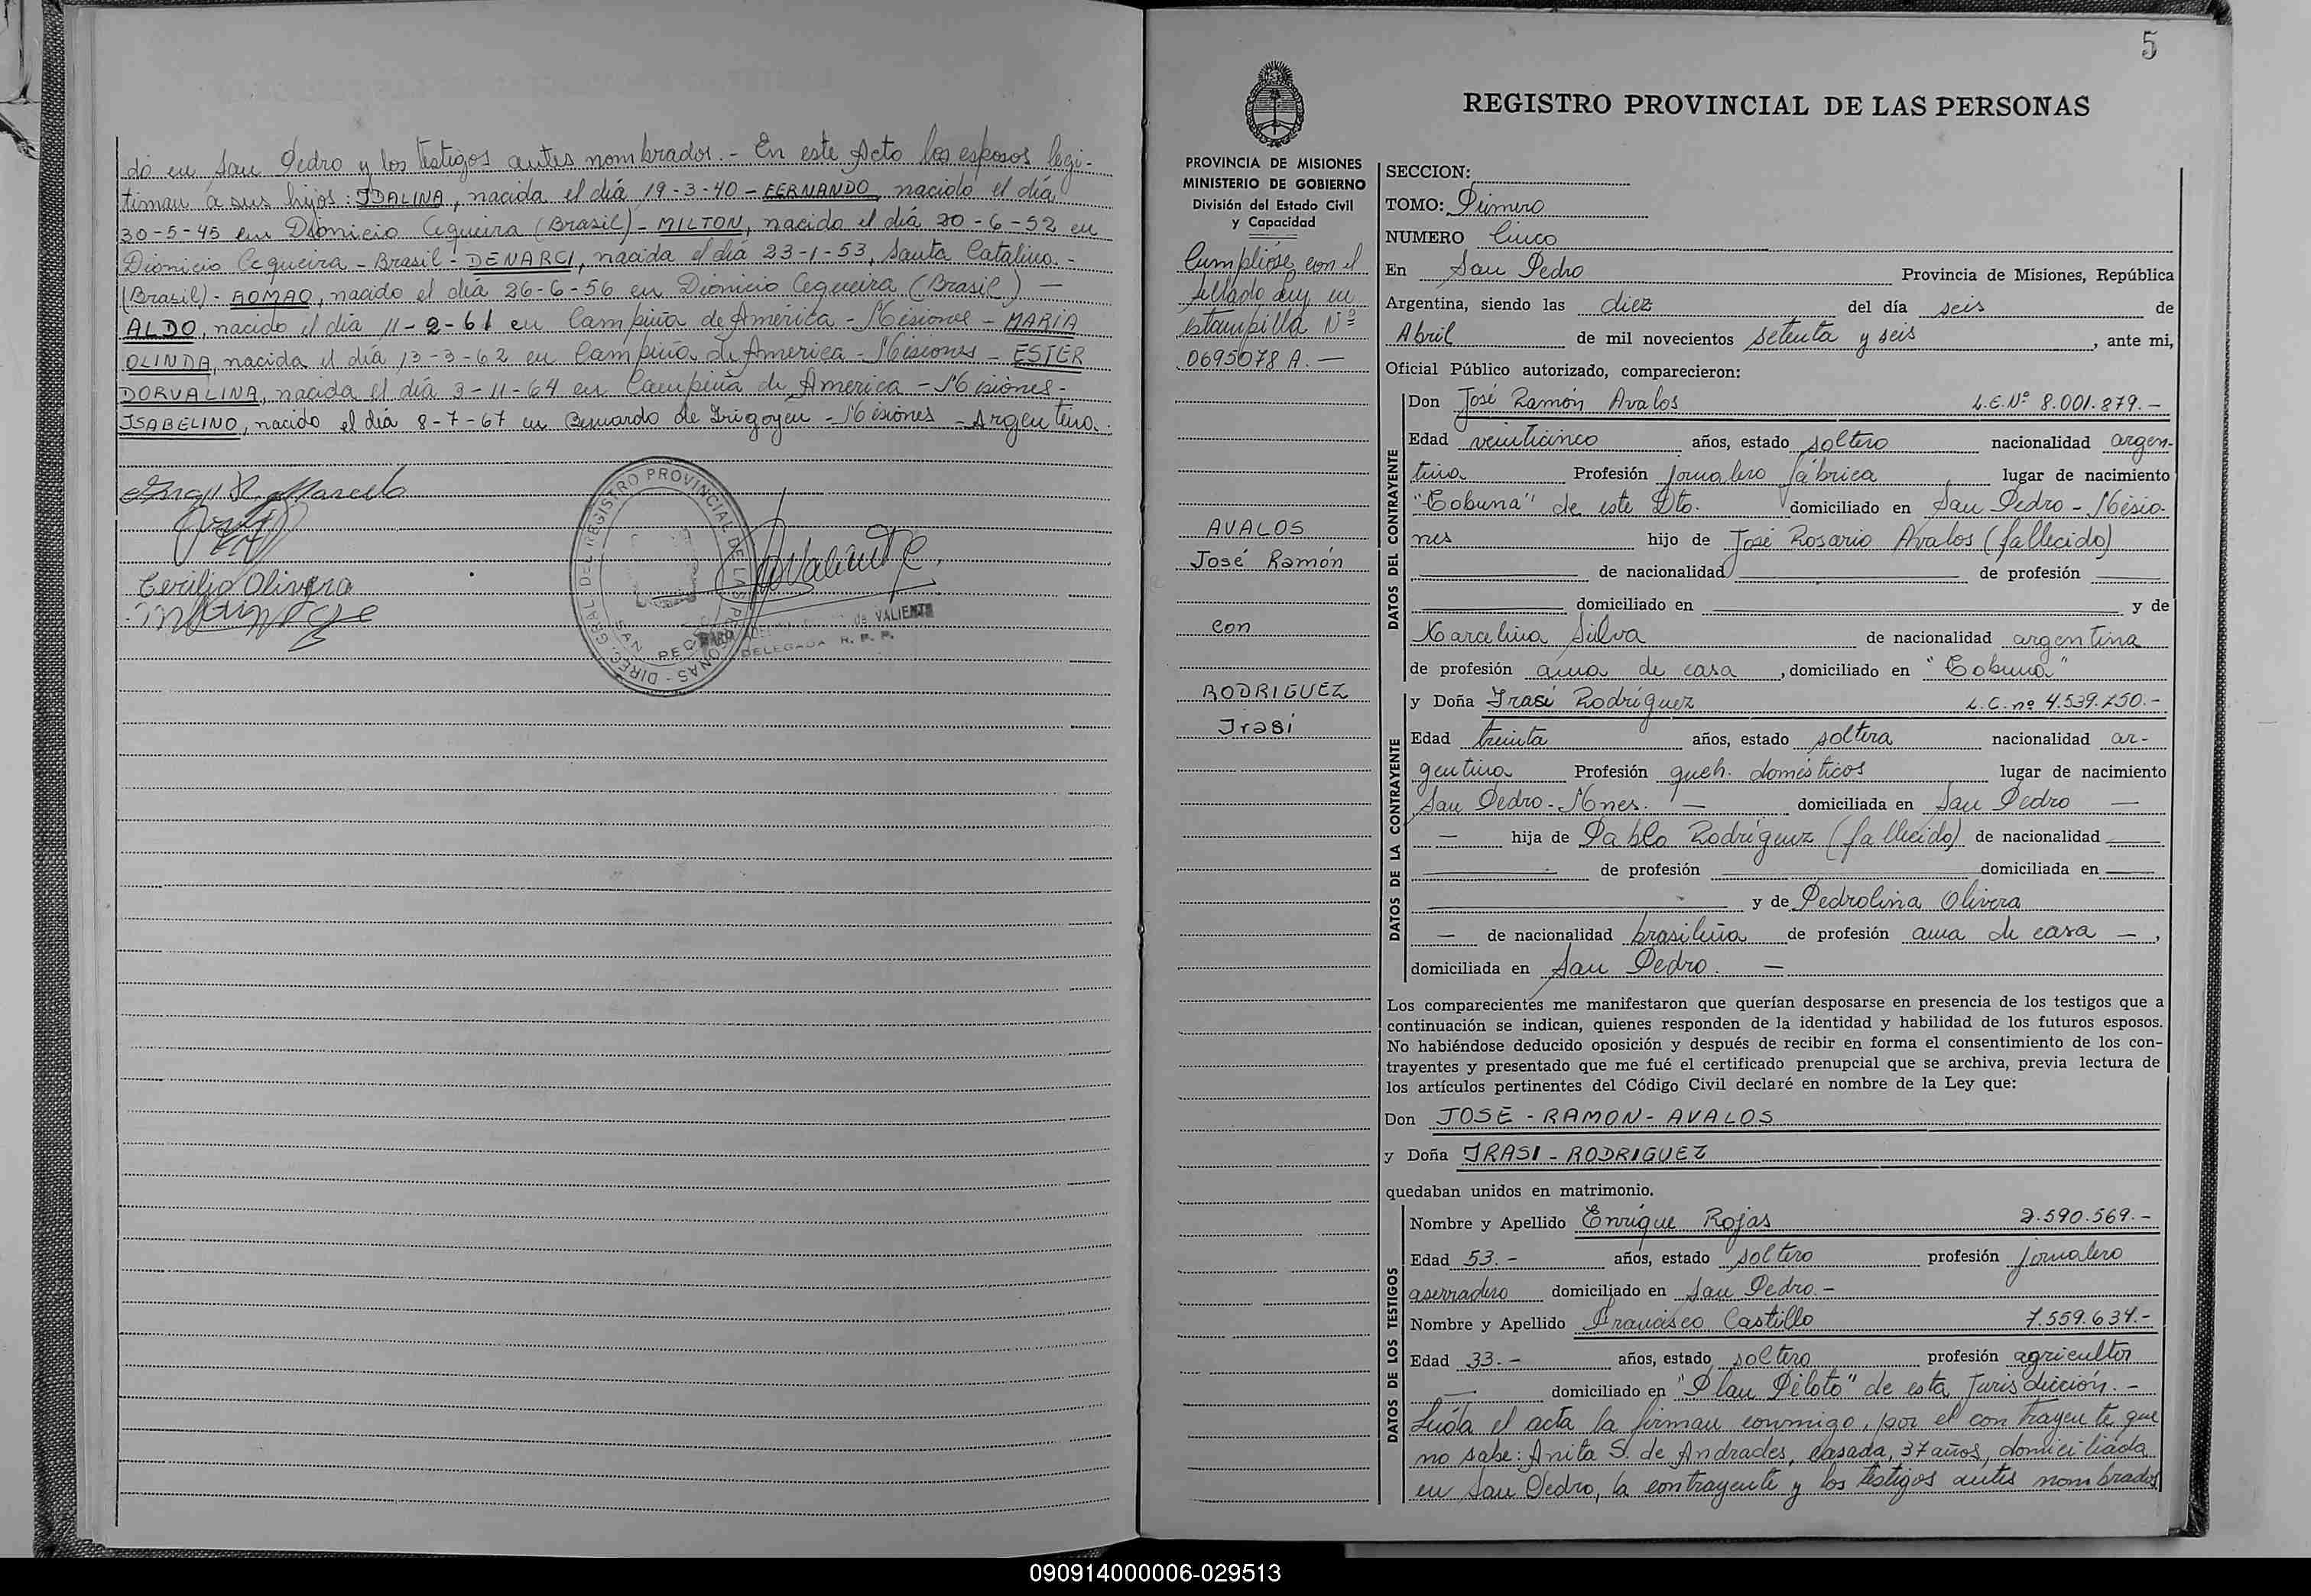 do en San Pedro y los testigos antes nombrados.- En este Acto los esposos legi-
timan a sus hijos: IDALINA, nacida el día 19-3-40 - FERNANDO nacido el día
30-5-45 en Dionicio Cequeira (Brasil) - MILTON, nacido el día 20-6-52 en
Dionicio Cequeira - Brasil - DENARCI, nacida el día 23-1-53, Santa Catalina.-
(Brasil)- ROMAO, nacido el día 26-6-56 en Dionicio Cequeira (Brasil) —
ALDO, nacido el día 11-2-61 en Campiña de América - Misiones - MARIA
OLINDA, nacida el día 13-3-62 en Campiña de América - Misiones - ESTER
DORVALINA, nacida el día 3-11-64 en Campiña de América - Misiones-
ISABELINO, nacido el día 8-7-67 en Bernardo de Irigoyen - Misiones - Argentina.
Cerilio Olivera
DIREC. GRAL. DEL REGISTRO PROVINCIAL DE LAS PERSONAS
SAN PEDRO
de VALIENTE
DELEGADA R. P. P.
5
REGISTRO PROVINCIAL DE LAS PERSONAS
PROVINCIA DE MISIONES
MINISTERIO DE GOBIERNO
División del Estado Civil
y Capacidad
Cumplióse con el
sellado Ley en
estampilla Nº
0695078 A.—
AVALOS
José Ramón
con
RODRIGUEZ
Irasi
SECCION:
TOMO: Primero
NUMERO Cinco
En San Pedro Provincia de Misiones, República
Argentina, siendo las diez del día seis de
Abril de mil novecientos setenta y seis, ante mi,
Oficial Público autorizado, comparecieron:
DATOS DEL CONTRAYENTE
Don José Ramón Avalos L.E.Nº 8.001.879.-
Edad veinticinco años, estado soltero nacionalidad argen-
tina Profesión jornalero fábrica lugar de nacimiento
"Cobuna" de este Dto. domiciliado en San Pedro - Misio-
nes hijo de José Rosario Avalos (fallecido)
de nacionalidad de profesión
domiciliado en y de
Marcelina Silva de nacionalidad argentina
de profesión ama de casa, domiciliado en "Cobuna"
DATOS DE LA CONTRAYENTE
y Doña Irasi Rodríguez L.C. nº 4.539.250.-
Edad treinta años, estado soltera nacionalidad ar-
gentina Profesión queh. domésticos lugar de nacimiento
San Pedro - Mnes. — domiciliada en San Pedro —
— hija de Pablo Rodríguez (fallecido) de nacionalidad
de profesión domiciliada en
y de Pedrolina Olivera
— de nacionalidad brasileña de profesión ama de casa —,
domiciliada en San Pedro. —
Los comparecientes me manifestaron que querían desposarse en presencia de los testigos que a
continuación se indican, quienes responden de la identidad y habilidad de los futuros esposos.
No habiéndose deducido oposición y después de recibir en forma el consentimiento de los con-
trayentes y presentado que me fué el certificado prenupcial que se archiva, previa lectura de
los artículos pertinentes del Código Civil declaré en nombre de la Ley que:
Don JOSÉ - RAMON - AVALOS
y Doña IRASI - RODRIGUEZ
quedaban unidos en matrimonio.
DATOS DE LOS TESTIGOS
Nombre y Apellido Enrique Rojas 2.590.569.-
Edad 53.- años, estado soltero profesión jornalero
aserradero domiciliado en San Pedro.-
Nombre y Apellido Francisco Castillo 7.559.634.-
Edad 33.- años, estado soltero profesión agricultor
domiciliado en "Plan Piloto" de esta Jurisdicción.-
Leída el acta la firman conmigo, por el contrayente que
no sabe: Anita S. de Andrades, casada, 37 años, domiciliada
en San Pedro, la contrayente y los testigos antes nombrados
090914000006-029513